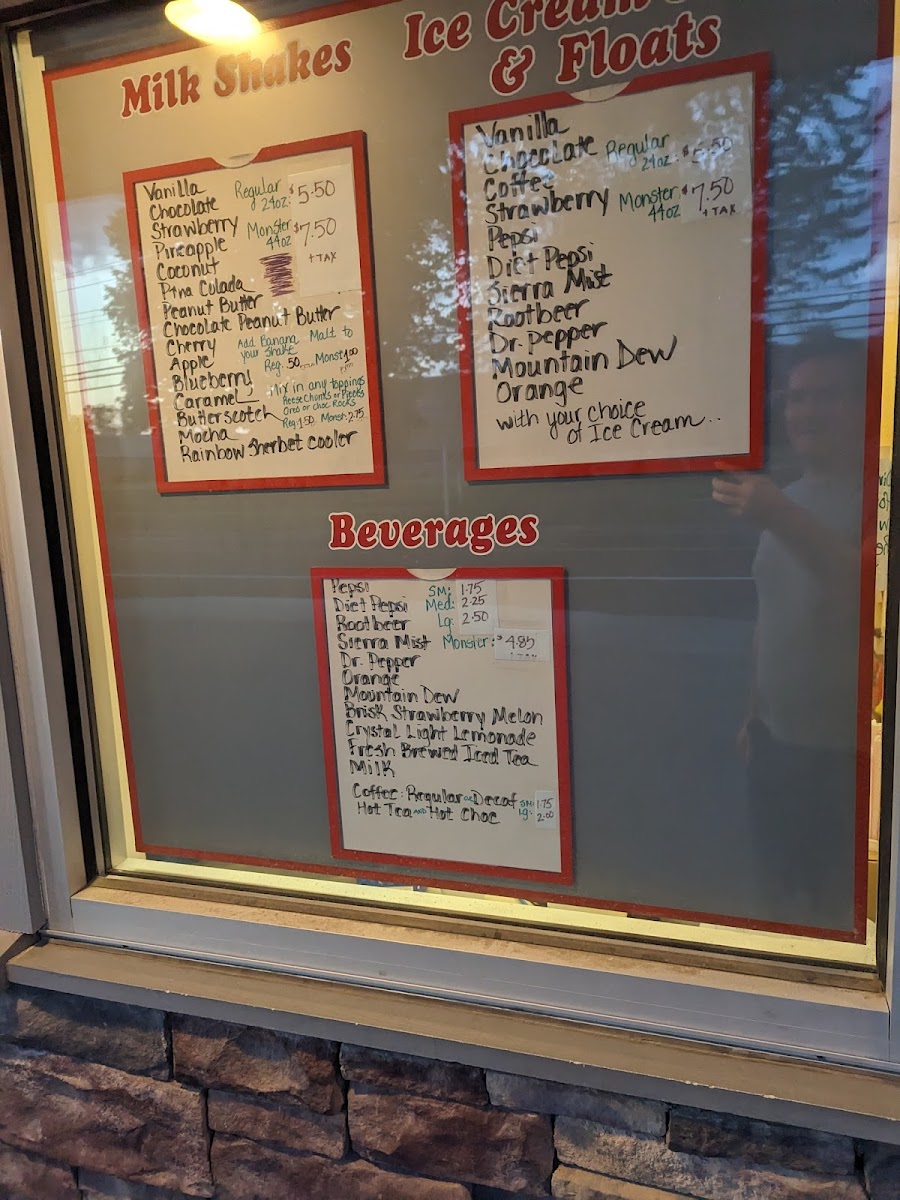 Milk Shakes
Vanilla
Chocolate
Strawberry
Pineapple
Coconut
Pina Colada
Peanut Butter
Chocolate Peanut Butter
Cherry
Apple
Blueberry
Caramel
Butterscotch
Mocha
Rainbow Sherbet cooler
Regular $5.50
24oz.
Monster $7.50
44oz
+TAX
Add Banana Malt to
your shake
Reg. .50 Monst. 1.00
Mix in any toppings
Reese Chunks or Pieces
Oreo or choc Rocks
Reg: 1.50 Monst: 2.75
Ice Cream
& Floats
Vanilla
Chocolate
Coffee
Strawberry
Pepsi
Diet Pepsi
Sierra Mist
Rootbeer
Dr. pepper
Mountain Dew
Orange
with your choice
of Ice Cream...
Regular $5.50
24oz.
Monster $7.50
44oz
+TAX
Beverages
Pepsi
Diet Pepsi
Rootbeer
Sierra Mist
Dr. Pepper
Orange
Mountain Dew
Brisk Strawberry Melon
Crystal Light Lemonade
Fresh Brewed Iced Tea
Milk
SM: 1.75
Med: 2.25
Lg: 2.50
Monster: $4.85
Coffee: Regular or Decaf SM: 1.75
Hot Tea and Hot Choc Lg: 2.00